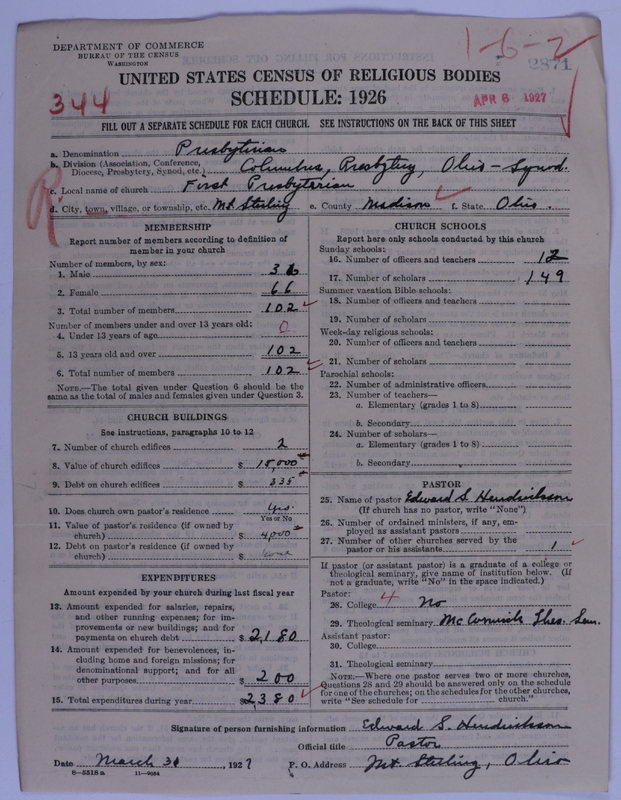 DEPARTMENT OF COMMERCE
BUREAU OF THE CENSUS
WASHINGTON
1-6-2
2871
UNITED STATES CENSUS OF RELIGIOUS BODIES
344
SCHEDULE: 1926
APR 6 1927
FILL OUT A SEPARATE SCHEDULE FOR EACH CHURCH. SEE INSTRUCTIONS ON THE BACK OF THIS SHEET
a. Denomination Presbyterian
b. Division (Association, Conference, Diocese, Presbytery, Synod, etc.) Columbus, Presbytery, Ohio - Synod.
c. Local name of church First Presbyterian
d. City, town, village, or township, etc. Mt Sterling e. County Madison f. State Ohio.
MEMBERSHIP
Report number of members according to definition of
member in your church
Number of members, by sex:
1. Male 36
2. Female 66
3. Total number of members 102
Number of members under and over 13 years old:
4. Under 13 years of age 0
5. 13 years old and over 102
6. Total number of members 102
NOTE.—The total given under Question 6 should be the
same as the total of males and females given under Question 3.
CHURCH BUILDINGS
See instructions, paragraphs 10 to 12
7. Number of church edifices 2
8. Value of church edifices $ 15,000
9. Debt on church edifices $ 335
10. Does church own pastor's residence Yes
Yes or No
11. Value of pastor's residence (if owned by
church) $ 4,000
12. Debt on pastor's residence (if owned by
church) $ none
EXPENDITURES
Amount expended by your church during last fiscal year
13. Amount expended for salaries, repairs,
and other running expenses; for im-
provements or new buildings; and for
payments on church debt $ 2,180
14. Amount expended for benevolences, in-
cluding home and foreign missions; for
denominational support; and for all
other purposes $ 200
15. Total expenditures during year $ 2,380
CHURCH SCHOOLS
Report here only schools conducted by this church
Sunday schools:
16. Number of officers and teachers 12
17. Number of scholars 149
Summer vacation Bible schools:
18. Number of officers and teachers
19. Number of scholars
Week-day religious schools:
20. Number of officers and teachers
21. Number of scholars
Parochial schools:
22. Number of administrative officers
23. Number of teachers—
a. Elementary (grades 1 to 8)
b. Secondary
24. Number of scholars—
a. Elementary (grades 1 to 8)
b. Secondary
PASTOR
25. Name of pastor Edward S. Hendrickson
(If church has no pastor, write "None")
26. Number of ordained ministers, if any, em-
ployed as assistant pastors
27. Number of other churches served by the
pastor or his assistants 1
If pastor (or assistant pastor) is a graduate of a college or
theological seminary, give name of institution below. (If
not a graduate, write "No" in the space indicated.)
Pastor:
28. College 4 No
29. Theological seminary McCormick Theo. Sem.
Assistant pastor:
30. College
31. Theological seminary
NOTE.—Where one pastor serves two or more churches,
Questions 28 and 29 should be answered only on the schedule
for one of the churches; on the schedules for the other churches,
write "See schedule for church."
Signature of person furnishing information Edward S. Hendrickson
Official title Pastor
Date March 30, 1927 P. O. Address Mt. Sterling, Ohio
8—5518 a 11—9034